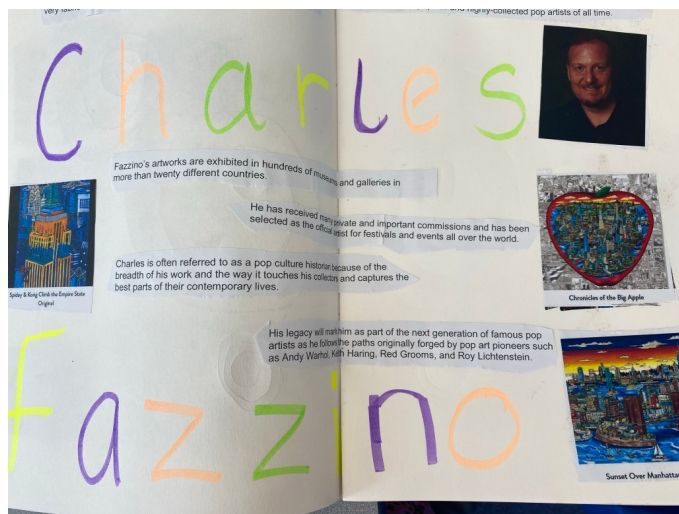 and highly-collected pop artists of all time.
Charles
Fazzino's artworks are exhibited in hundreds of museums and galleries in
more than twenty different countries.
He has received many private and important commissions and has been
selected as the official artist for festivals and events all over the world.
Charles is often referred to as a pop culture historian because of the
breadth of his work and the way it touches his collectors and captures the
best parts of their contemporary lives.
Spidey & Kong Climb the Empire State
Original
Chronicles of the Big Apple
His legacy will mark him as part of the next generation of famous pop
artists as he follows the paths originally forged by pop art pioneers such
as Andy Warhol, Keith Haring, Red Grooms, and Roy Lichtenstein.
Fazzino
Sunset Over Manhatta